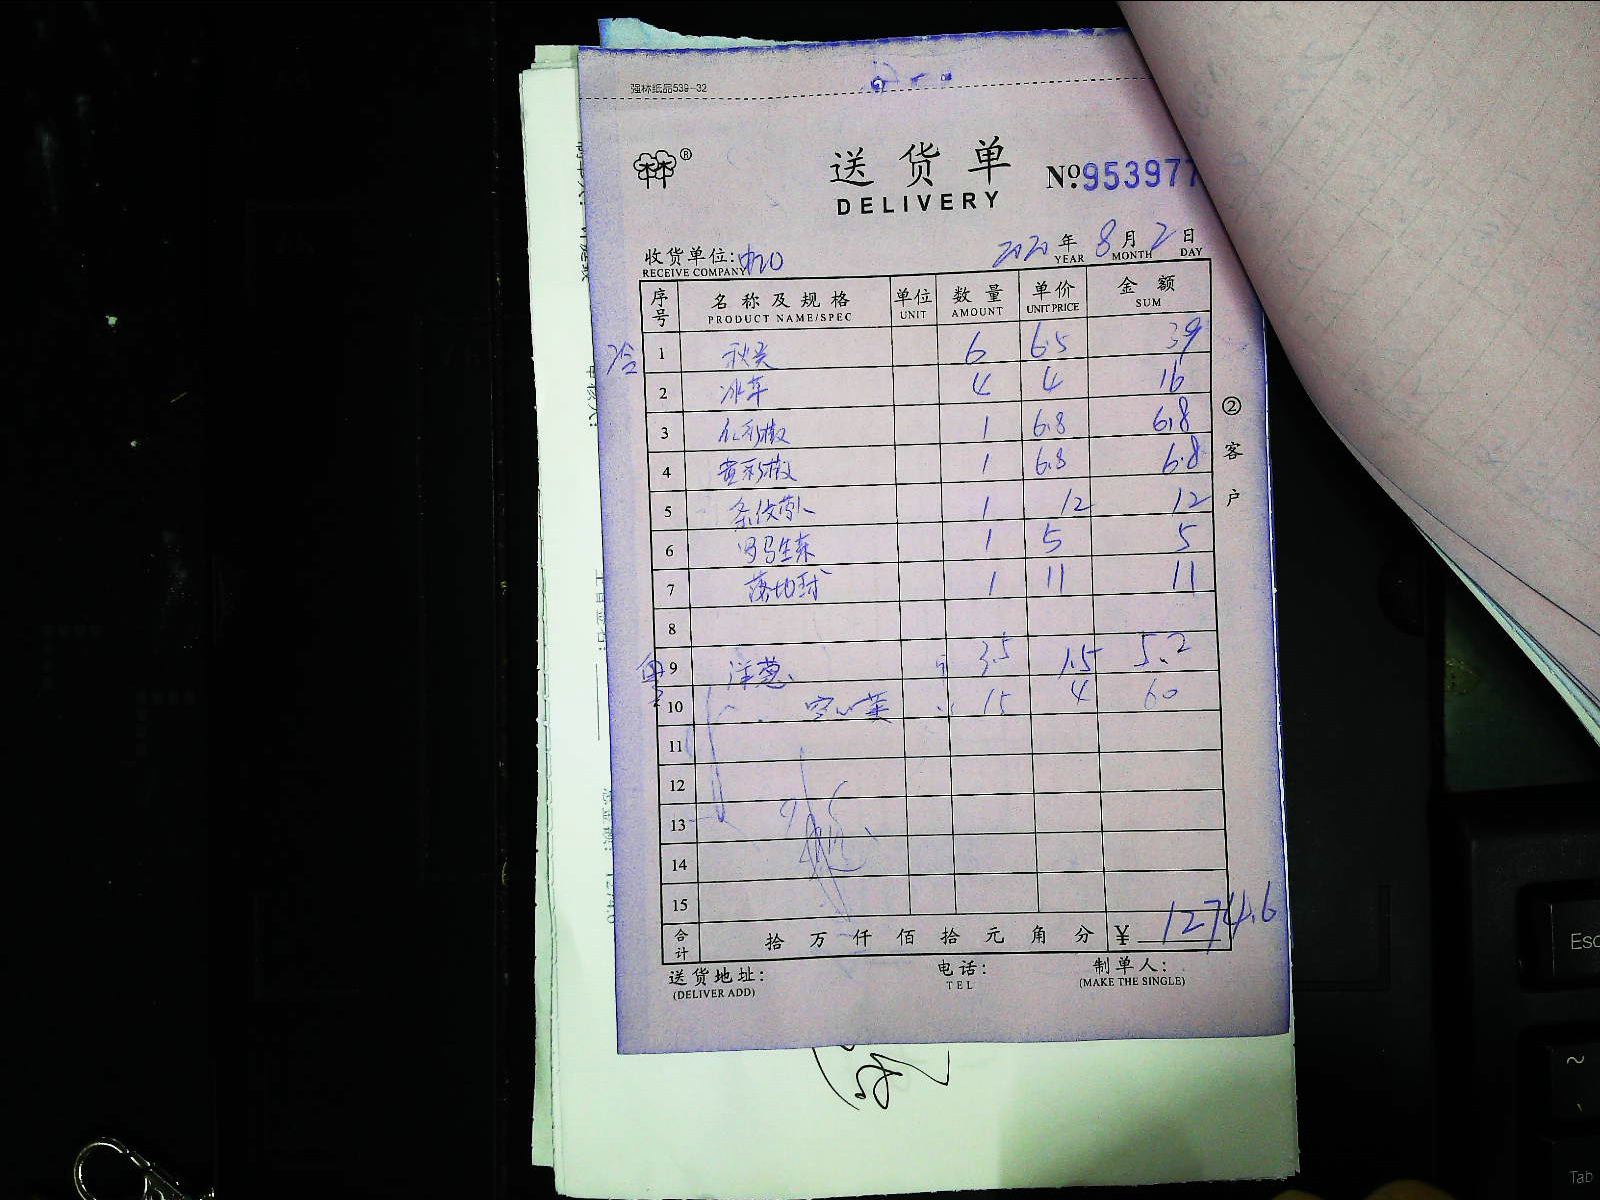 强林纸品539-32
®
送货单
DELIVERY
№:953977
收货单位:
RECEIVE COMPANY
2020年8月2日
YEAR MONTH DAY
序号 名称及规格 单位 数量 单价 金额
PRODUCT NAME/SPEC UNIT AMOUNT UNIT PRICE SUM
冷 1 秋葵 6 6.5 39
2 冰草 4 4 16
3 红彩椒 1 6.8 6.8
4 黄彩椒 1 6.8 6.8
5 1 12 12
6 罗马生菜 1 5 5
7 1 11 11
8
9 洋葱 3.5 1.5 5.2
10 空心菜 15 4 60
11
12
13
14
15
合计 拾万仟佰拾元角分 ¥ 1274.6
送货地址: 电话: 制单人:
(DELIVER ADD) TEL (MAKE THE SINGLE)
②客户
Esc
~
Tab